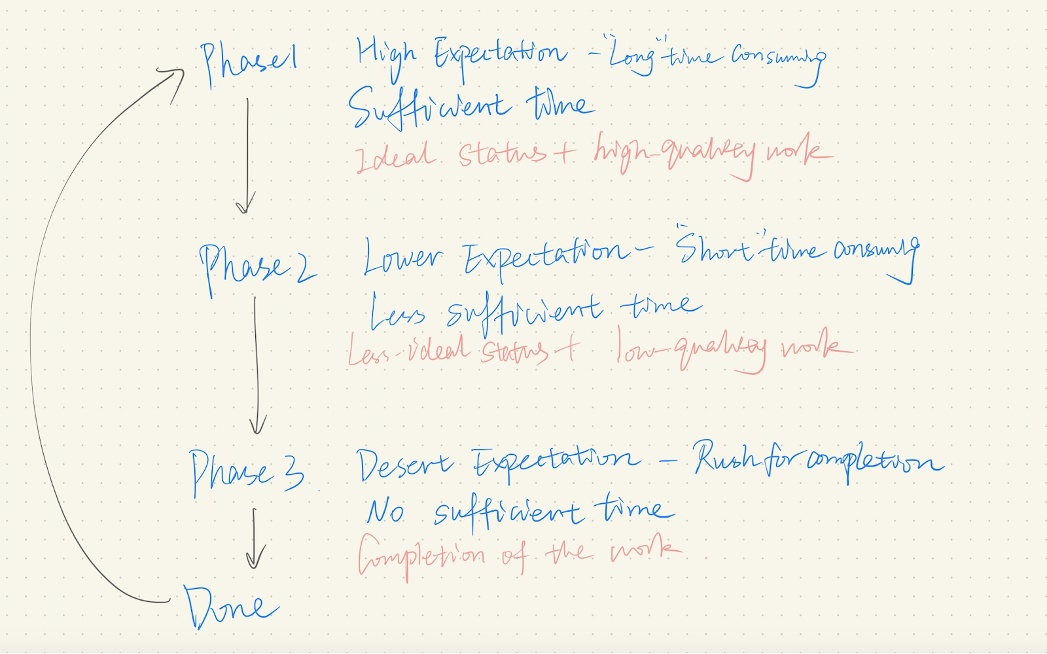 Phase1
High Expectation - "Long" time consuming
Sufficient time
Ideal status + high-quality work
Phase 2
Lower Expectation - "Short" time consuming
Less sufficient time
Less-ideal status + low-quality work
Phase 3
Desert Expectation - Rush for completion
No sufficient time
Completion of the work.
Done